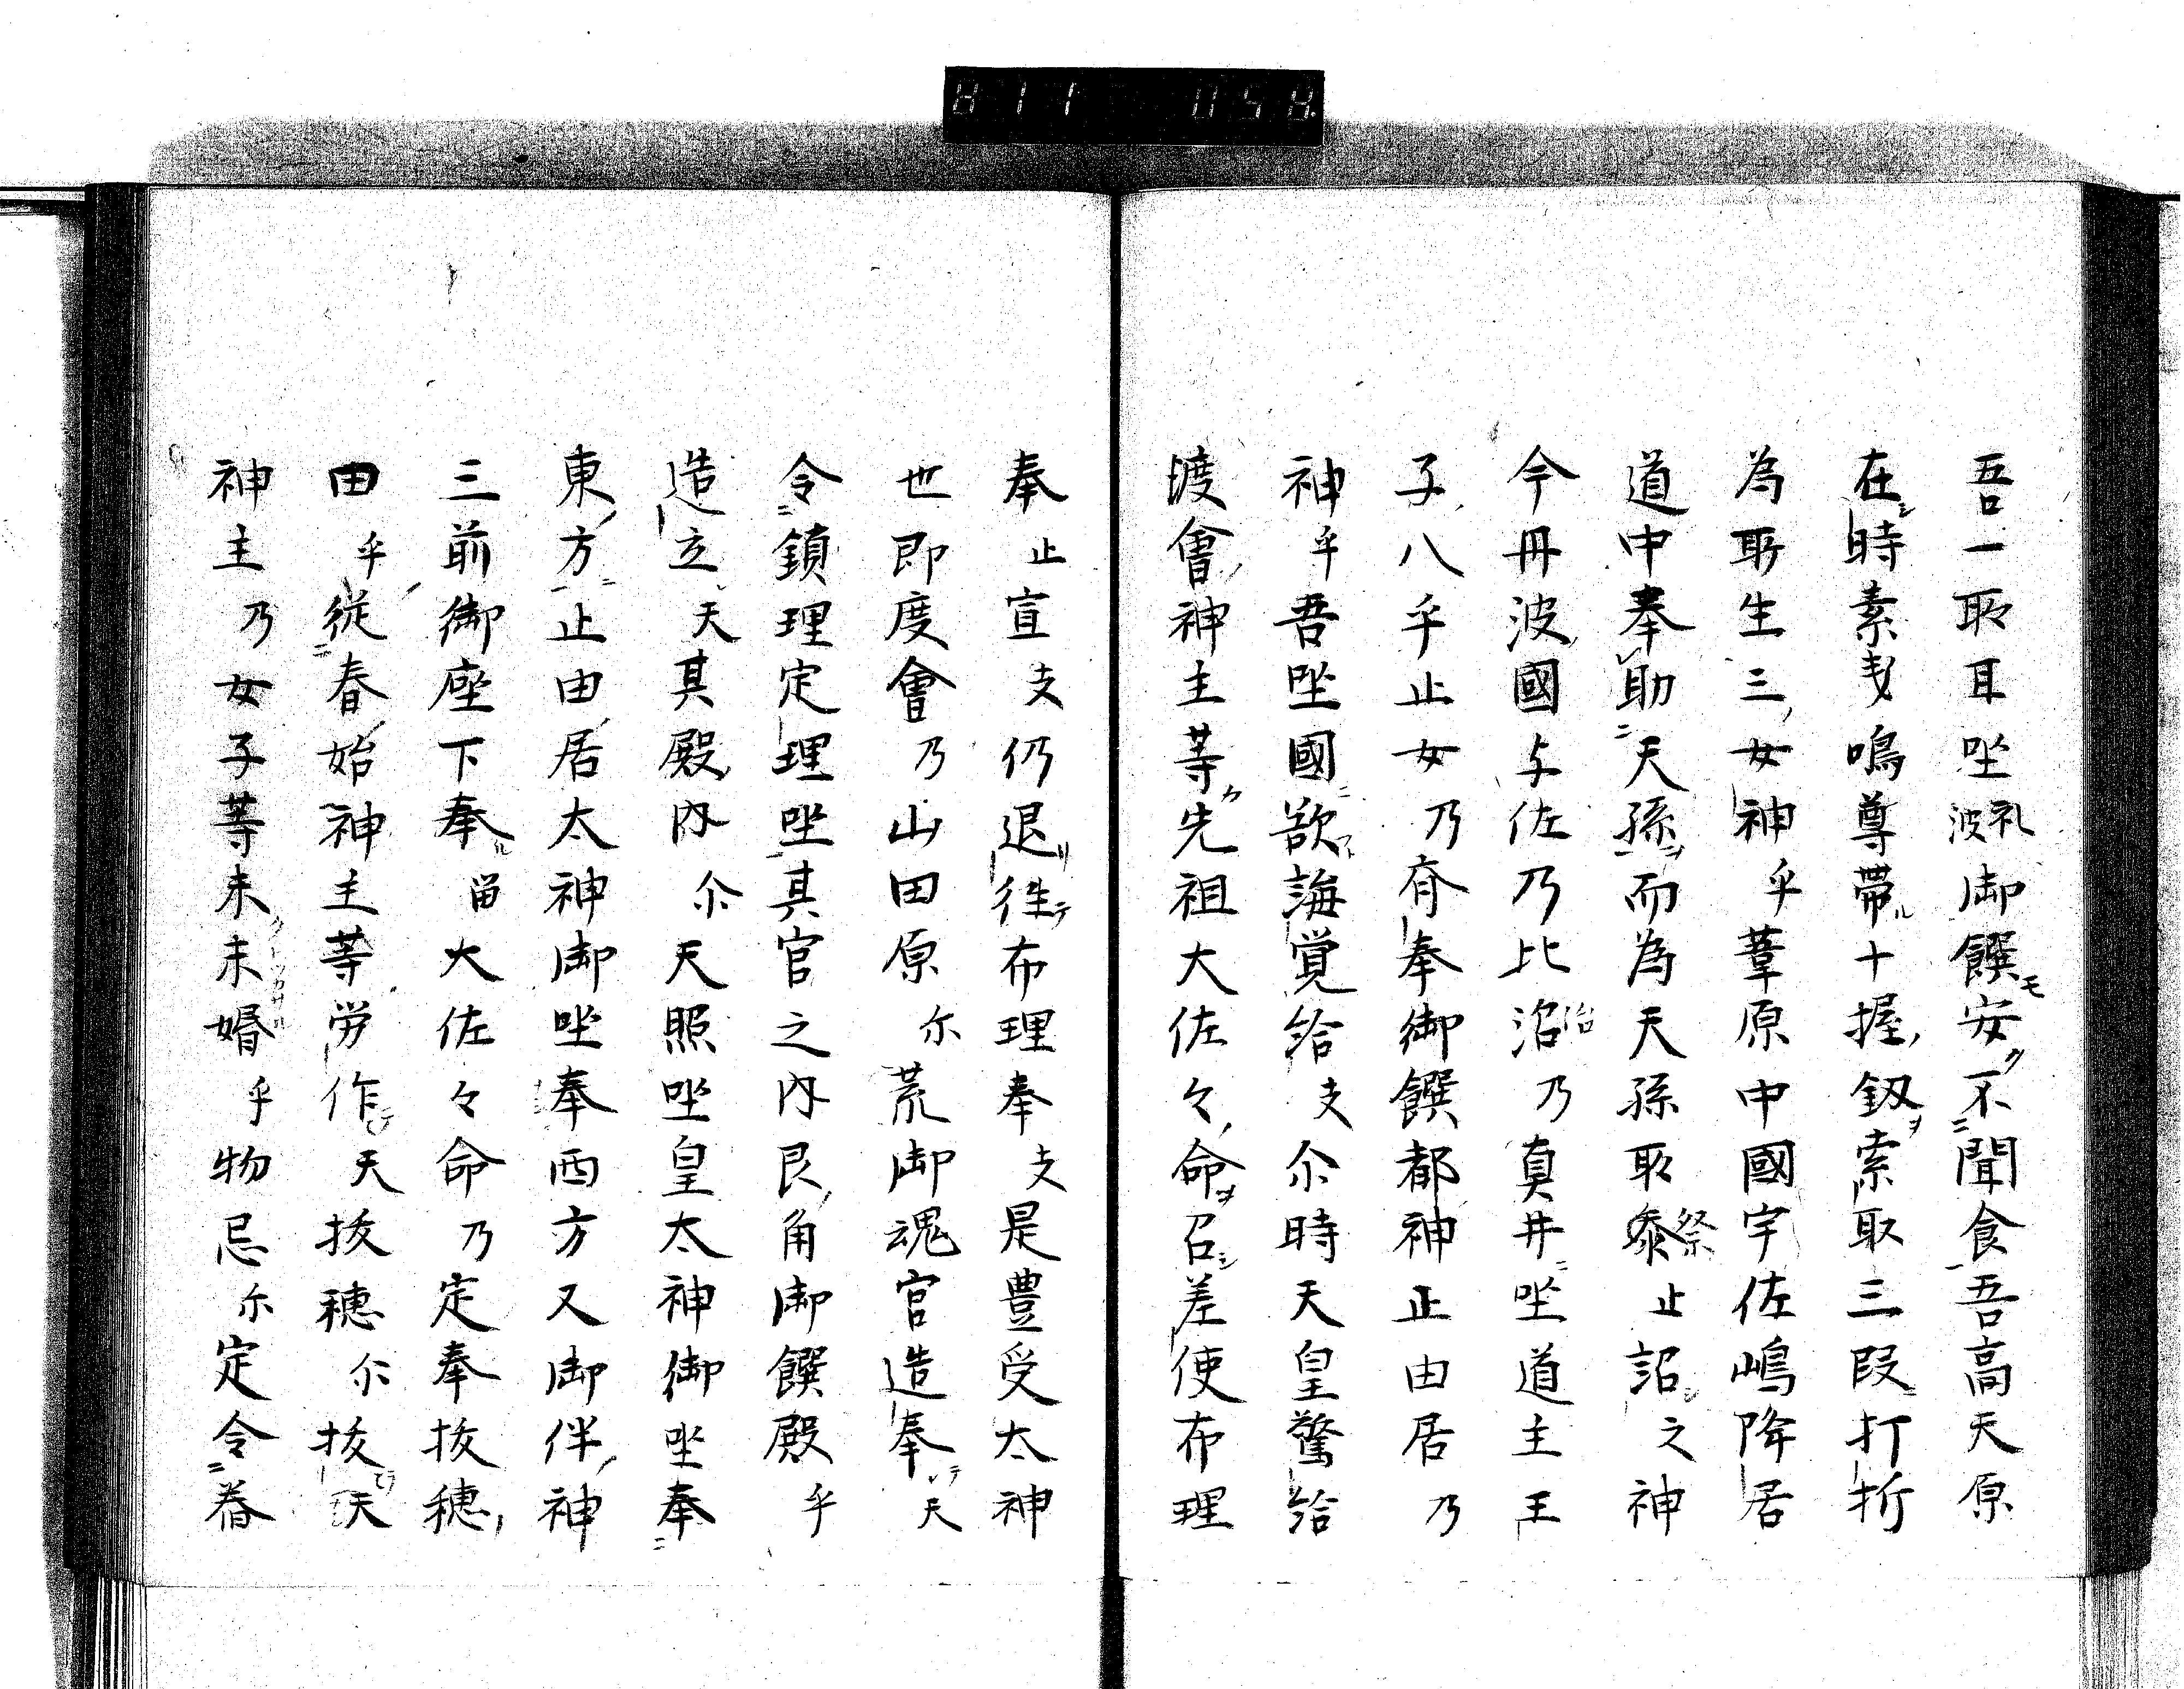 吾一所耳坐礼波御饌安不聞食吾高天原
在時素戔鳴尊帶十握釼索取三段打折
為所生三女神乎葦原中國宇佐嶋降居
道中奉助天孫而為天孫所祭止詔之神
今丹波國与佐乃比沼乃真井坐道主王
子八乎止女乃斎奉御饌都神止由居乃
神乎吾坐國欲誨覚給支尓時天皇驚給
渡會神主等先祖大佐々命召差使布理
奉止宣支仍退往布理奉支是豊受太神
也即度會乃山田原尓荒御魂宮造奉天
令鎮理定理坐其宮之内艮角御饌殿乎
造立天其殿内尓天照坐皇太神御坐奉
東方止由居太神御坐奉西方又御伴神
三前御座下奉留大佐々命乃定奉抜穂
田乎従春始神主等労作天抜穂尓抜天
神主乃女子等未未婚乎物忌尓定令舂